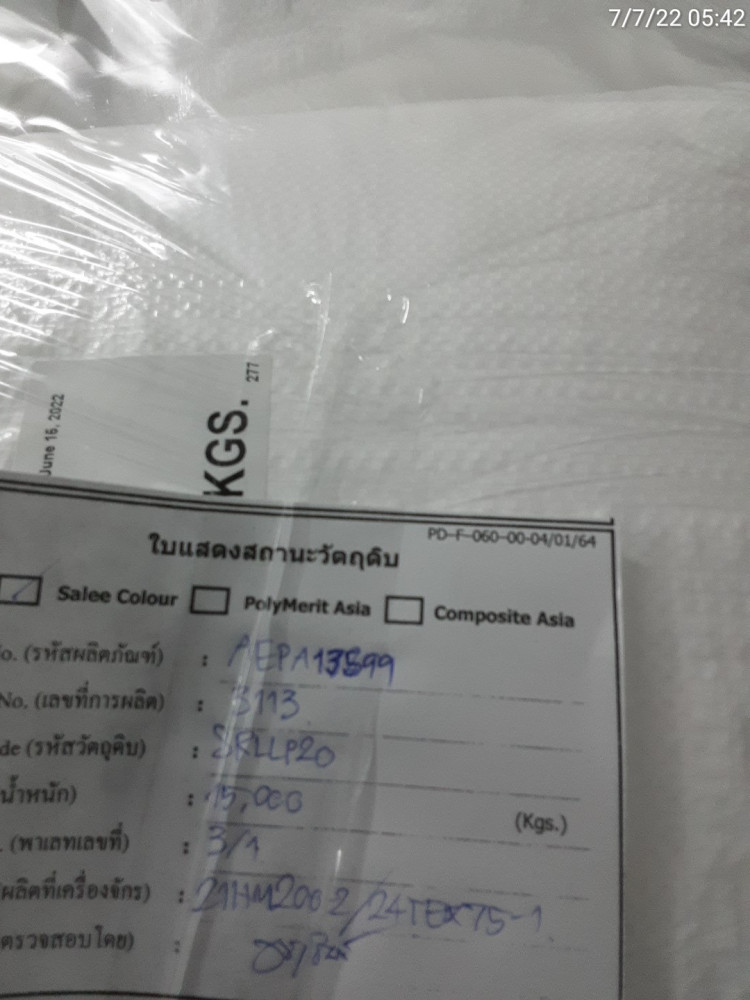 7/7/22 05:42
June 16, 2022
KGS.
277
PD-F-060-00-04/01/64
ใบแสดงสถานะวัตถุดิบ
Salee Colour PolyMerit Asia Composite Asia
o. (รหัสผลิตภัณฑ์) : AEPA13599
No. (เลขที่การผลิต) : 3113
de (รหัสวัตถุดิบ) : SRLLP20
น้ำหนัก) : 15,000 (Kgs.)
. (พาเลทเลขที่) : 3/1
ผลิตที่เครื่องจักร) : 21HM2002/24TEX75-1
ตรวจสอบโดย) :